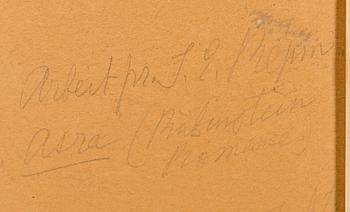 Arbeit pr. I. E. Repin
Asra (Rubinstein
Romance)